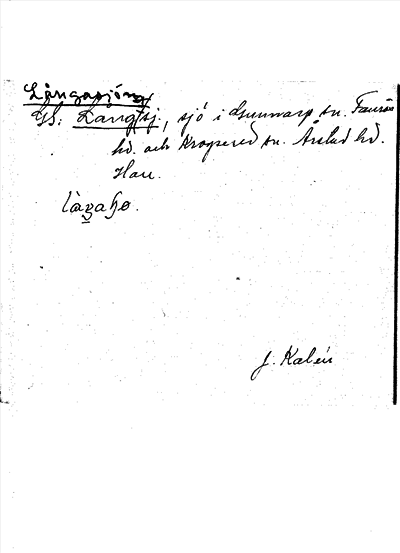 Långasjön
GS: Långsj., sjö i Gunnarp sn. Faurås
hd. och Krogsered sn. Årstad hd.
Hall.
J. Kalén